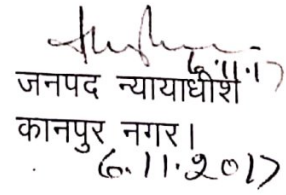 6.11.17
जनपद न्यायाधीश
कानपुर नगर।
6.11.2017